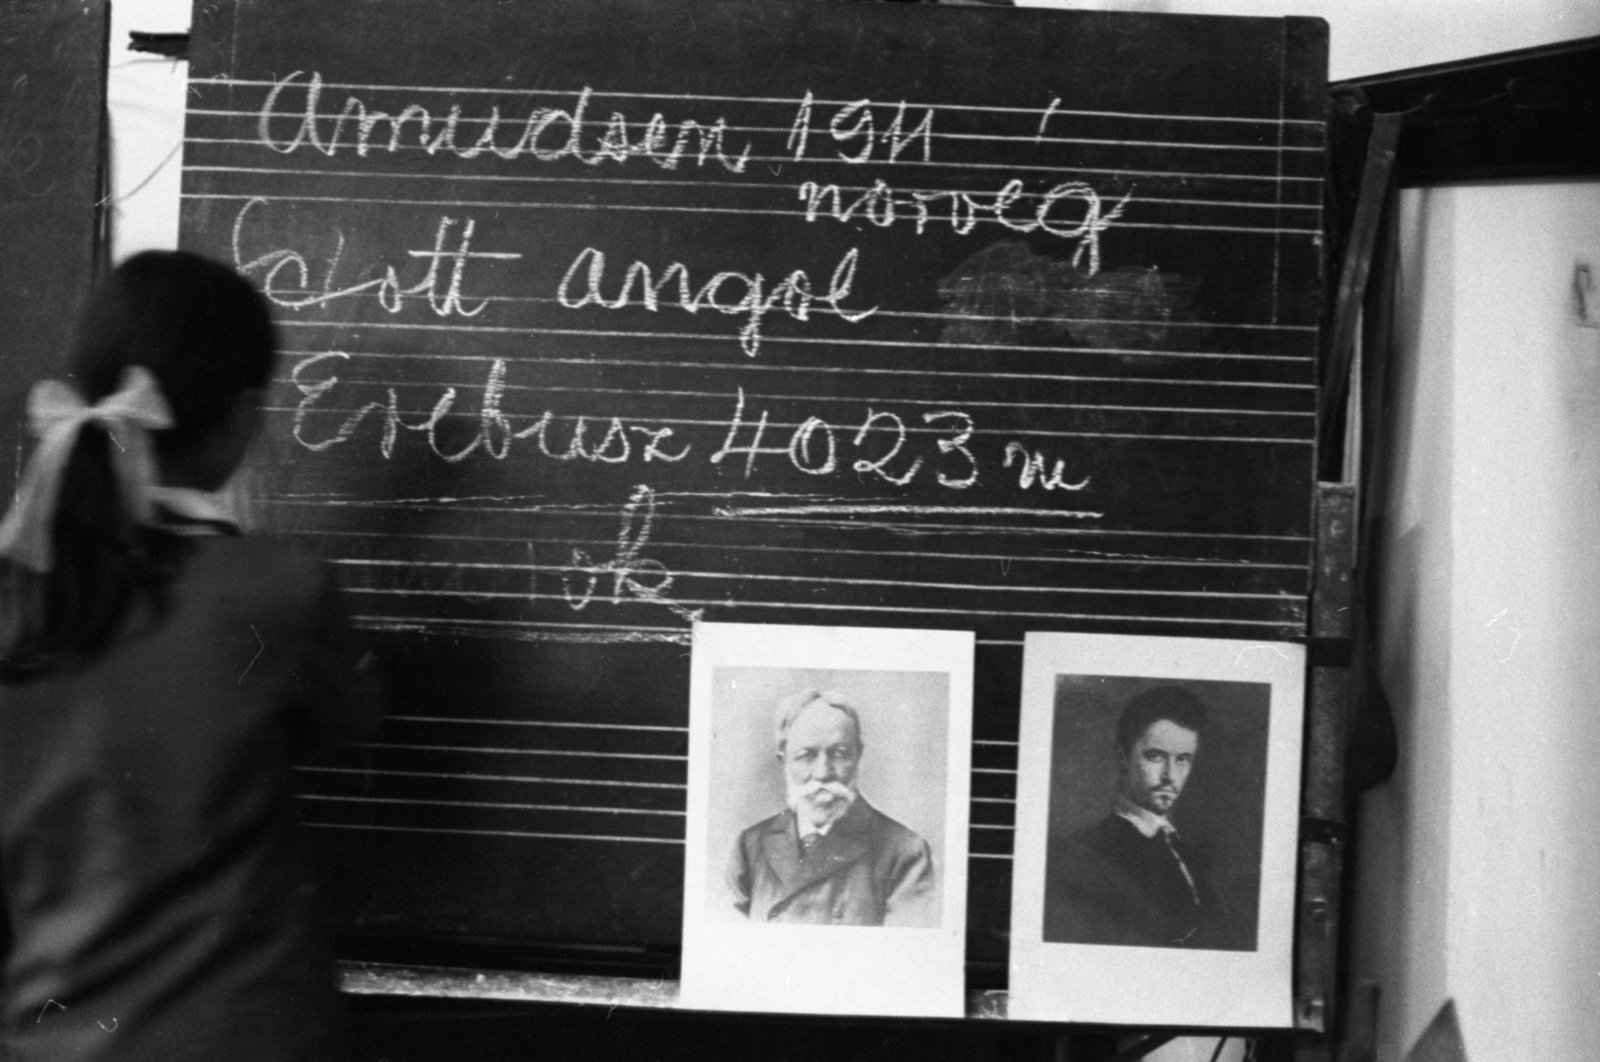 Amudsen 1911
norveg
Scott angol
Erebusz 4023 m
ok